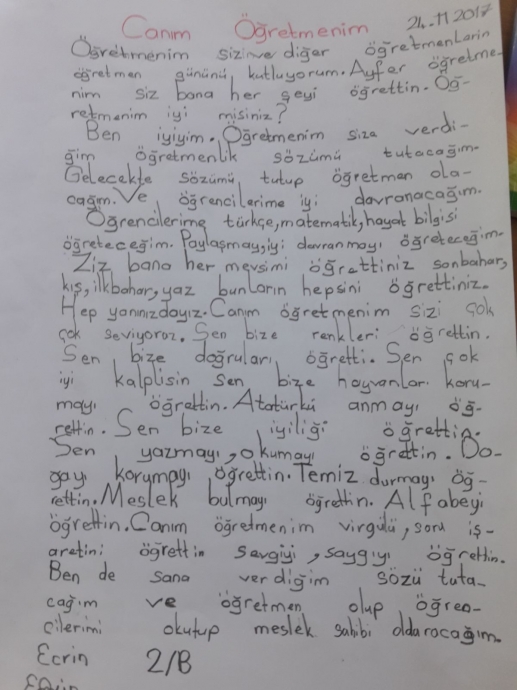 Canım Öğretmenim 24.11.2017
Öğretmenim sizin ve diğer öğretmenlerin
öğretmen gününü kutluyorum. Ayfer öğretme-
nim siz bana her şeyi öğrettin. Öğ-
retmenim iyi misiniz?
Ben iyiyim. Öğretmenim size verdi-
ğim öğretmenlik sözümü tutacağım.
Gelecekte sözümü tutup öğretmen ola-
cağım. Ve öğrencilerime iyi davranacağım.
Öğrencilerime türkçe, matematik, hayat bilgisi
öğreteceğim. Paylaşmayı, iyi davranmayı öğreteceğim.
Ziz bana her mevsimi öğrettiniz sonbahar,
kış, ilkbahar, yaz bunların hepsini öğrettiniz.
Hep yanınızdayız. Canım öğretmenim sizi çok
çok seviyoroz. Sen bize renkleri öğrettin.
Sen bize doğruları öğretti. Sen çok
iyi kalplisin Sen bize hayvanları koru-
mayı öğrettin. Atatürkü anmayı öğ-
rettin. Sen bize iyiliği öğrettin.
Sen yazmayı, okumayı öğrettin. Do-
ğayı korumayı öğrettin. Temiz durmayı öğ-
rettin. Meslek bulmayı öğrettin. Alfabeyi
öğrettin. Canım öğretmenim virgülü, soru iş-
aretini öğrettin sevgiyi, saygıyı öğrettin.
Ben de sana verdiğim sözü tuta-
cağım ve öğretmen olup öğren-
cilerimi okutup meslek sahibi oldaracağım.
Ecrin 2/B